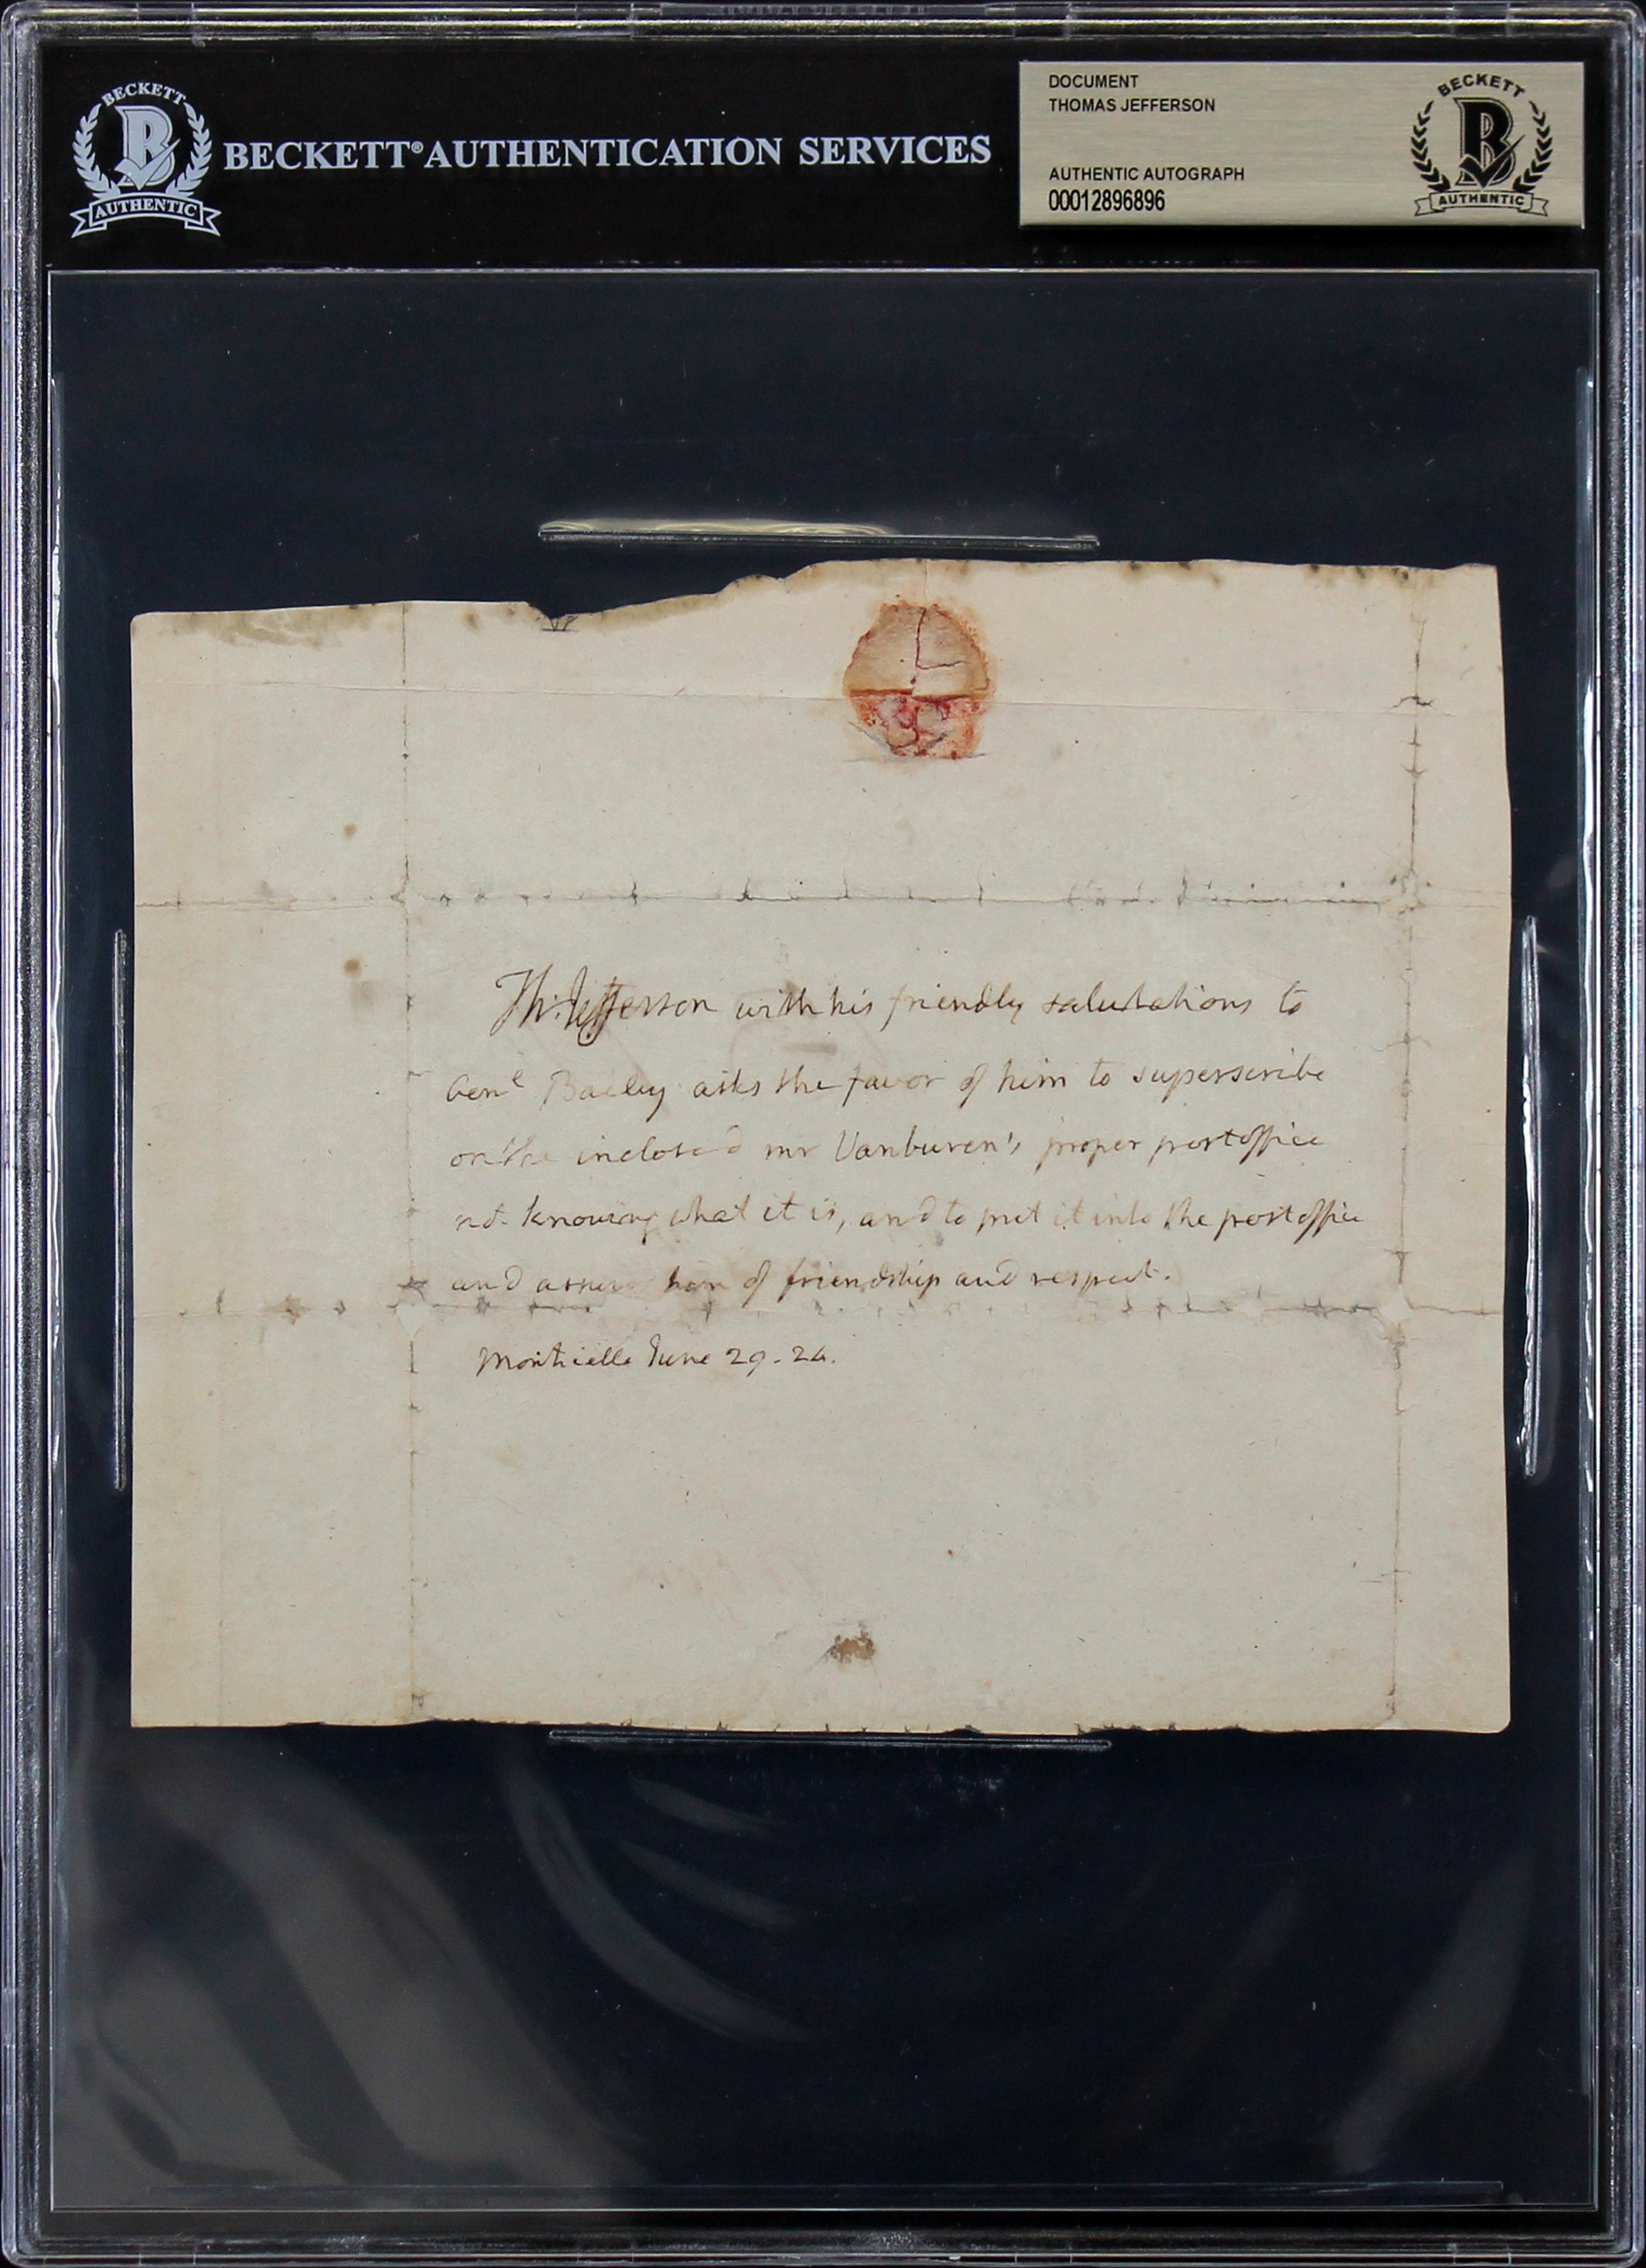 BECKETT
B
AUTHENTIC
BECKETT® AUTHENTICATION SERVICES
DOCUMENT
THOMAS JEFFERSON
AUTHENTIC AUTOGRAPH
00012896896
BECKETT
B
AUTHENTIC
Th: Jefferson with his friendly salutations to
Genl Bailey asks the favor of him to superscribe
on the inclosed mr Vanburen's proper post office
not knowing what it is, and to put it into the post office
and assure him of friendship and respect.
Monticello June 29. 24.